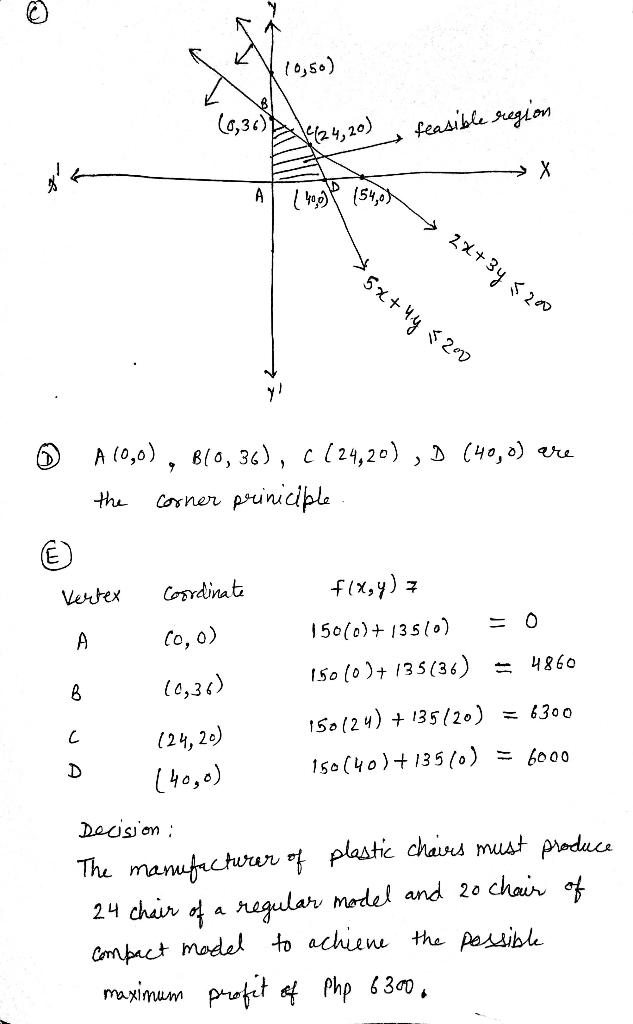 C
Y
(0,50)
B
(0,36)
C(24,20)
feasible region
x'
X
A
(40,0)
D
(54,0)
2x+3y ≤ 200
5x+4y ≤ 200
y'
D A(0,0), B(0, 36), C (24,20), D (40,0) are
the corner priniciple.
E
Vertex Coordinate f(x,y) z
A (0,0) 150(0)+135(0) = 0
B (0,36) 150(0)+135(36) = 4860
C (24,20) 150(24)+135(20) = 6300
D (40,0) 150(40)+135(0) = 6000
Decision:
The manufacturer of plastic chairs must produce
24 chair of a regular model and 20 chair of
compact model to achieve the possible
maximum profit of Php 6300.